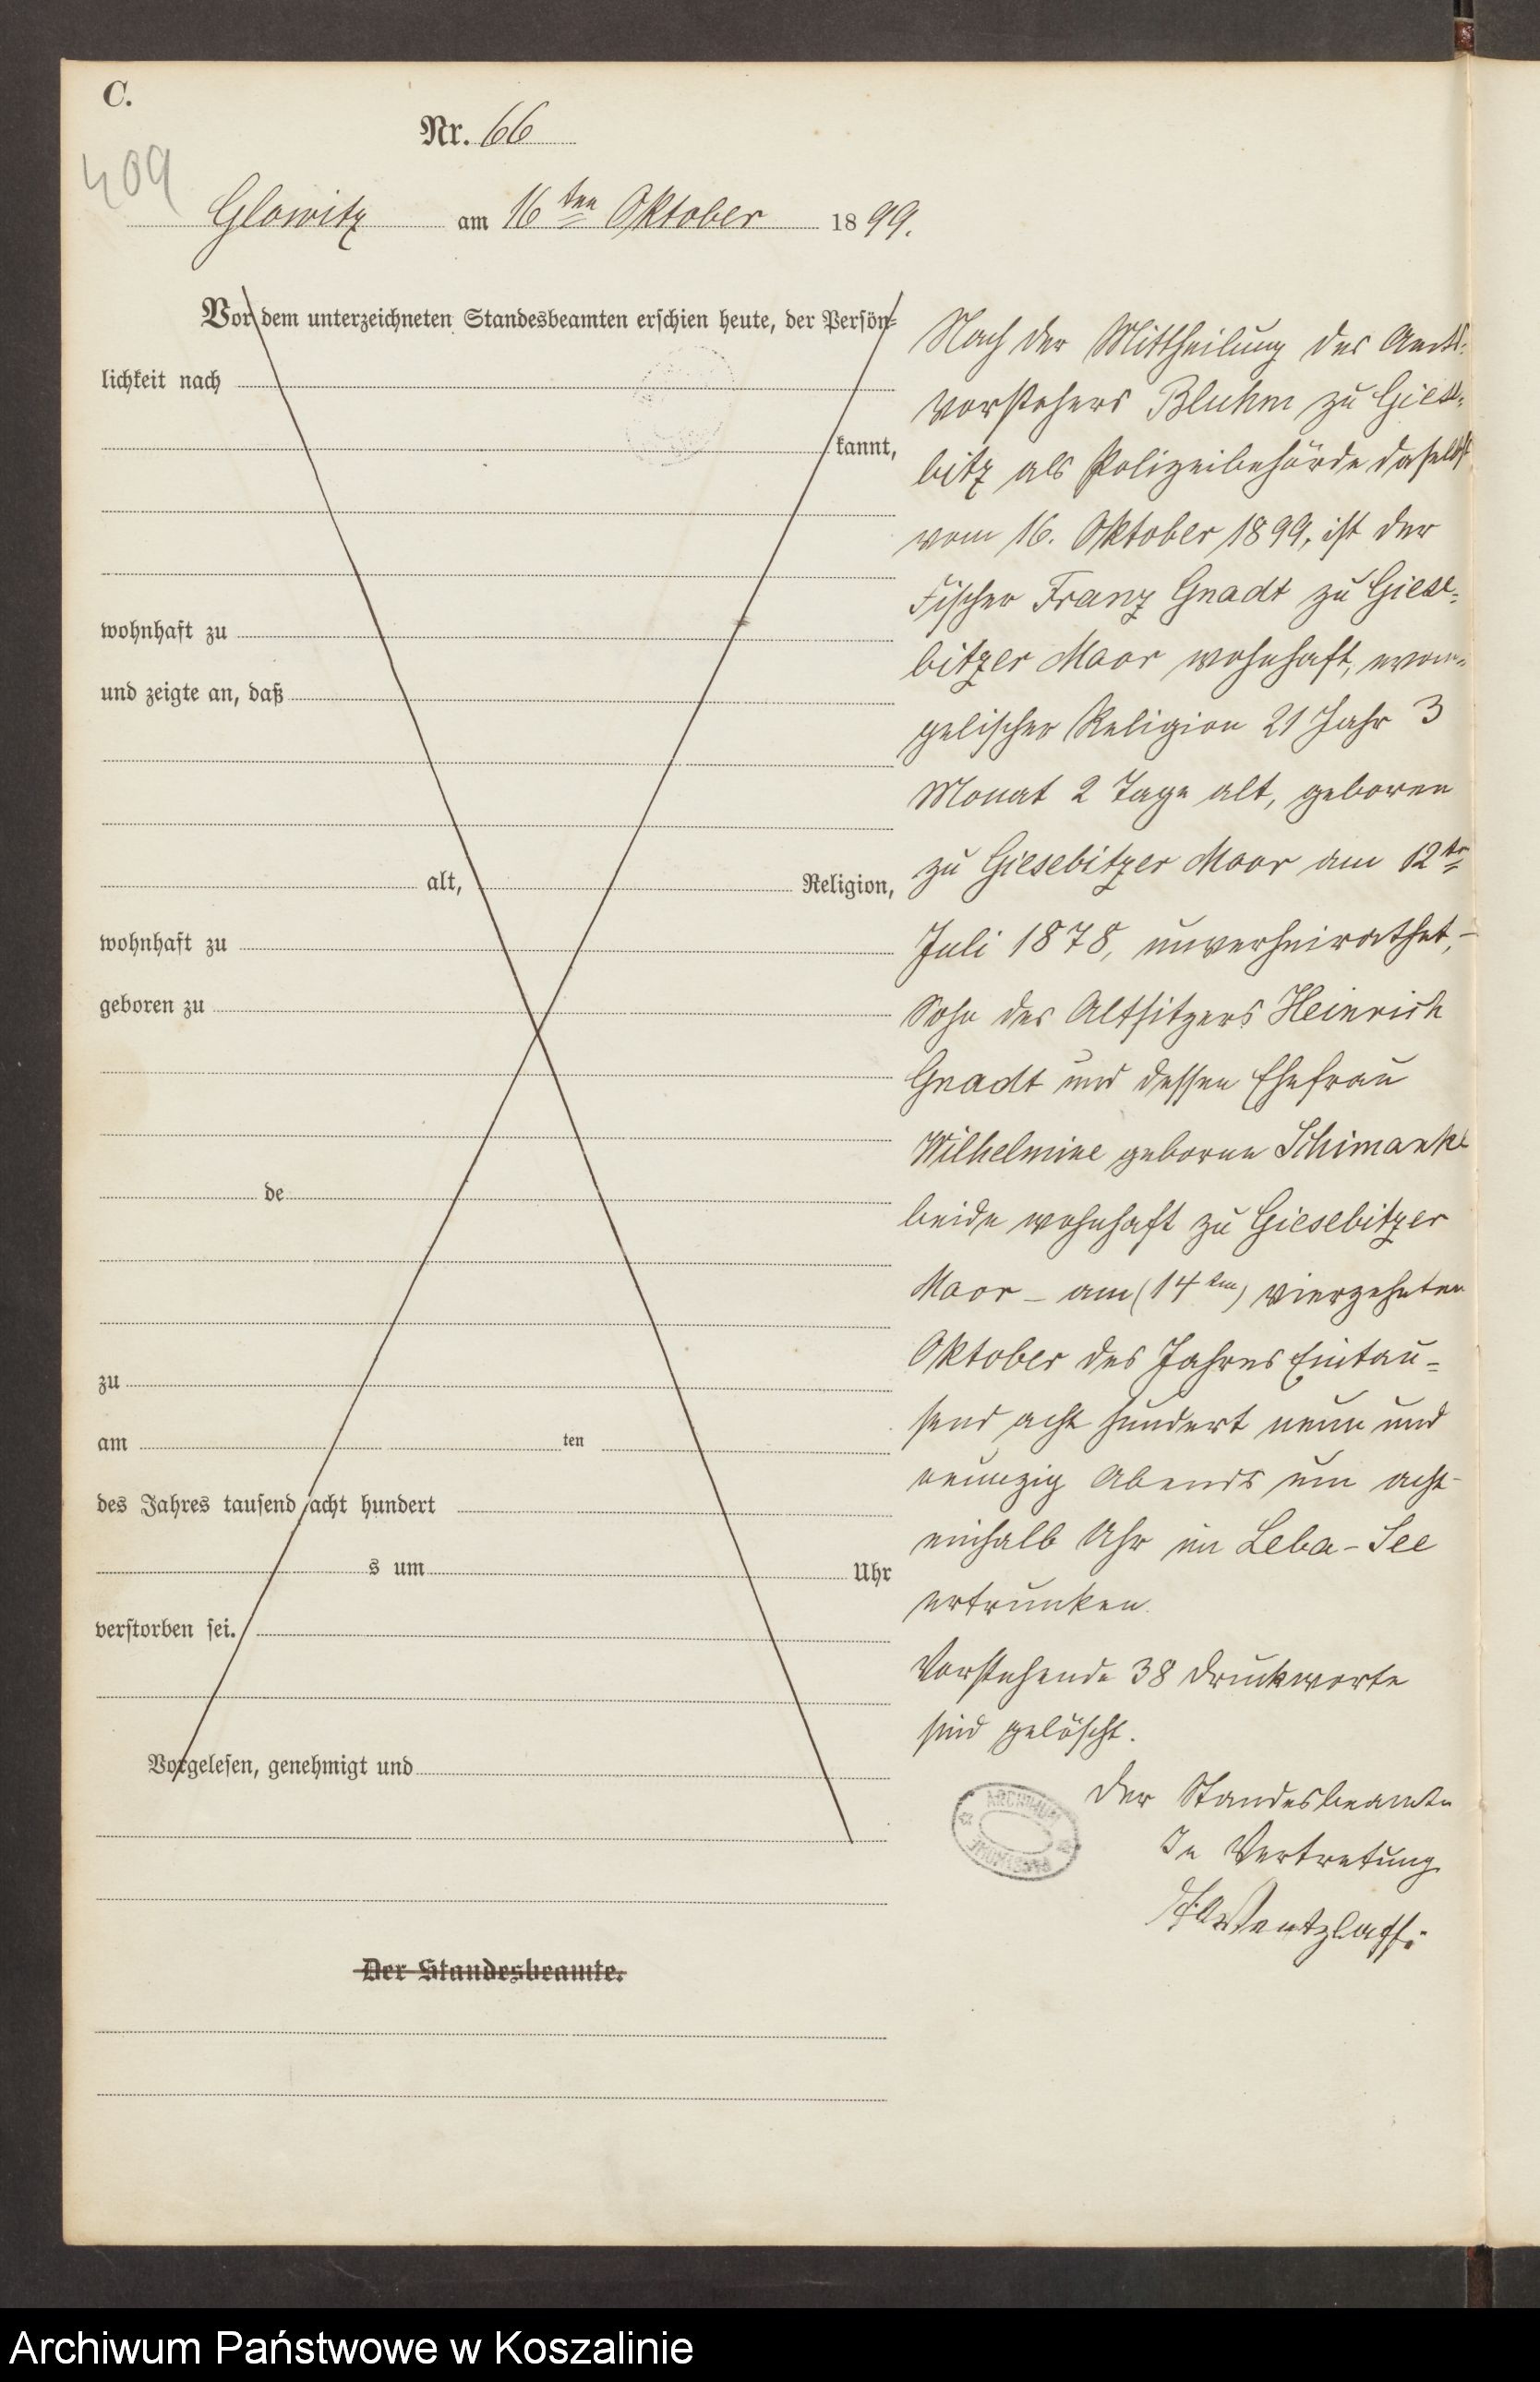 C.
Nr. 66
409
Glowitz am 16ten Oktober 1899.
Vor dem unterzeichneten Standesbeamten erschien heute, der Persön-
lichkeit nach
kannt,
wohnhaft zu
und zeigte an, daß
alt, Religion,
wohnhaft zu
geboren zu
de
zu
am ten
des Jahres tausend acht hundert
s um Uhr
verstorben sei.
Vorgelesen, genehmigt und
Der Standesbeamte.
Nach der Mittheilung des Amts-
vorstehers Bluhm zu Giese-
bitz als Polizeibehörde daselbst
vom 16. Oktober 1899, ist der
Fischer Franz Gnadt zu Giese-
bitzer Moor wohnhaft, evan-
gelischer Religion 21 Jahr 3
Monat 2 Tage alt, geboren
zu Giesebitzer Moor am 12te
Juli 1878, unverheirathet, -
Sohn des Altsitzers Heinrich
Gnadt und dessen Ehefrau
Wilhelmine geborne Schimanke
beide wohnhaft zu Giesebitzer
Moor - am (14ten) vierzehnten
Oktober des Jahres Eintau-
send acht hundert neun und
neunzig Abends um acht-
einhalb Uhr im Leba-See
ertrunken.
Vorstehende 38 Druckworte
sind gelöscht.
Der Standesbeamte
In Vertretung
Wentzlaff.
ARCHIWUM
PAŃSTWOWE
Archiwum Państwowe w Koszalinie